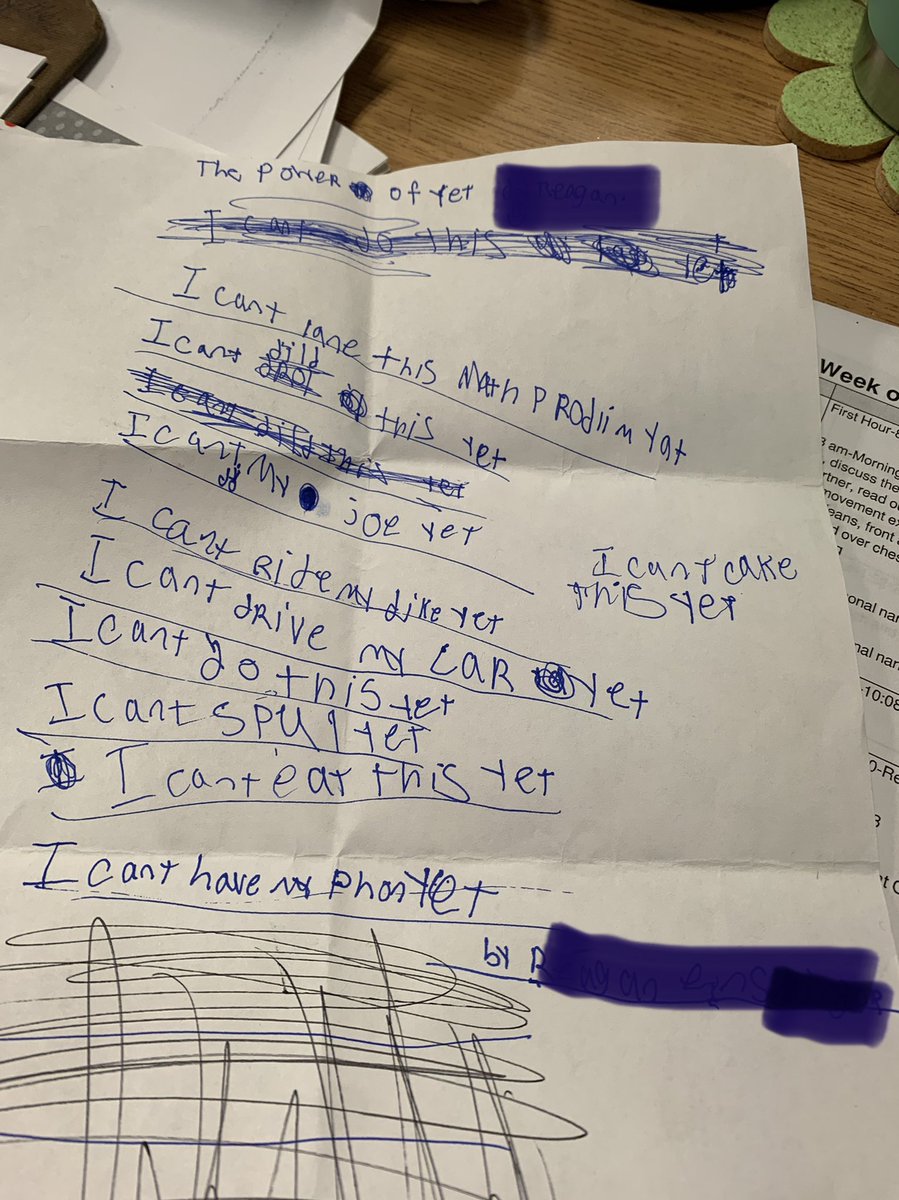 The Power of Yet
I cant do this yet
I cant lane this Math PRodlim Yat
I cant dild this yet
I cant dild this yet
I cant dy My joe yet
I cant Ride my dike yet
I cant cake
this yet
I cant dRive my CAR yet
I cant do this yet
I cant SPUl yet
I cant eat this yet
I cant have my phon Yet
by
Week o
First Hour-8
am-Morning
discuss the
rtner, read o
movement e
eans, front
d over ches
onal nar
nal nar
-10:08
0-Re